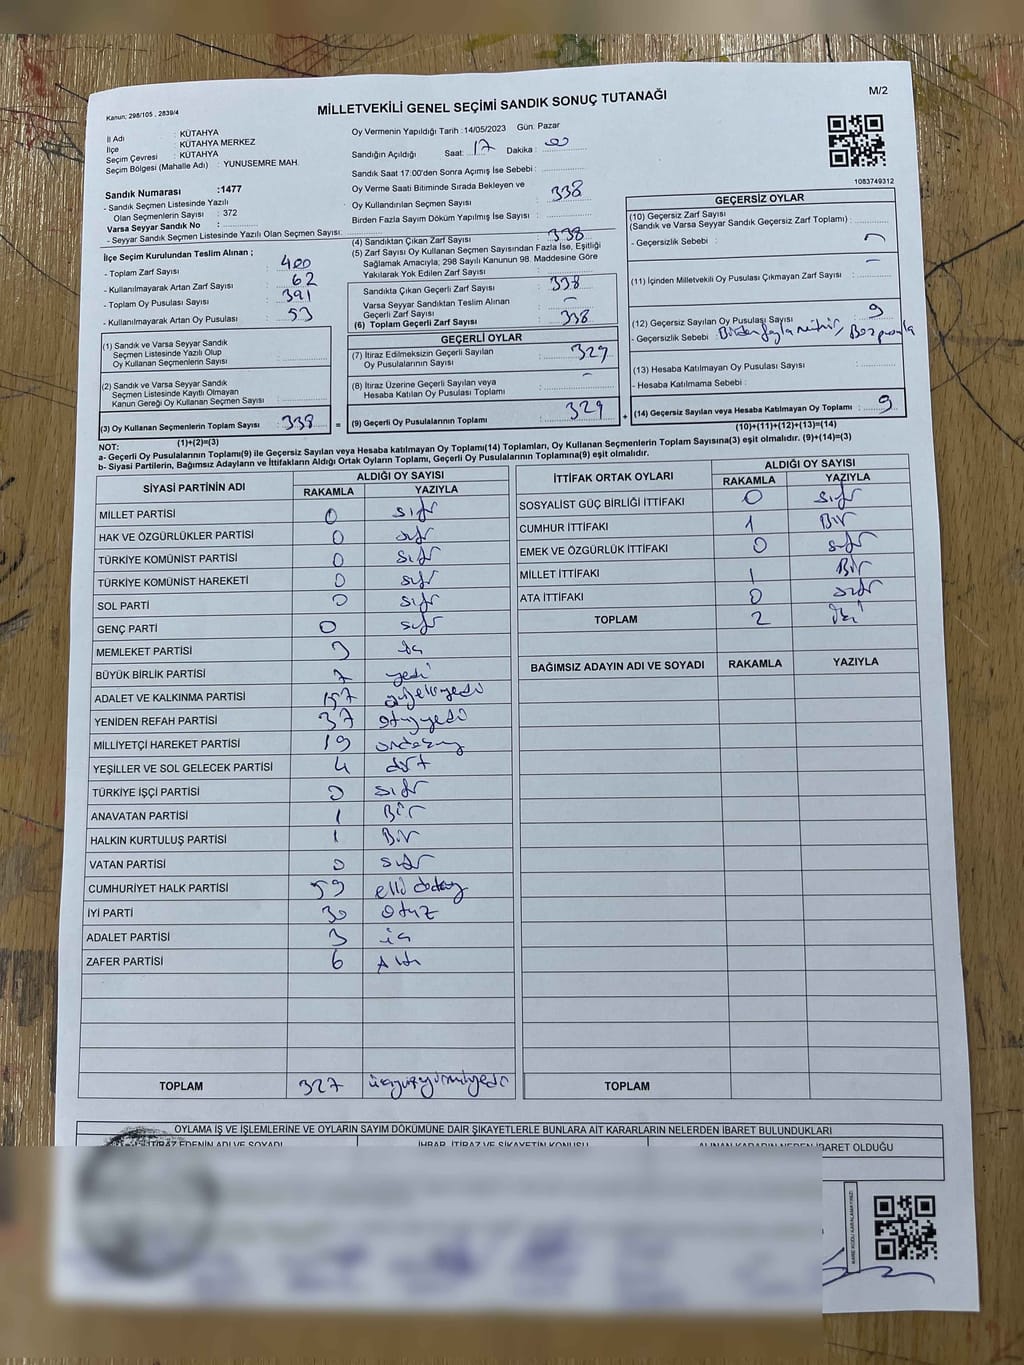 Kanun; 298/105 , 2839/4
MİLLETVEKİLİ GENEL SEÇİMİ SANDIK SONUÇ TUTANAĞI
M/2
İl Adı : KÜTAHYA
İlçe : KÜTAHYA MERKEZ
Seçim Çevresi : KÜTAHYA
Seçim Bölgesi (Mahalle Adı) : YUNUSEMRE MAH.
Sandık Numarası :1477
- Sandık Seçmen Listesinde Yazılı
Olan Seçmenlerin Sayısı : 372
Varsa Seyyar Sandık No :
- Seyyar Sandık Seçmen Listesinde Yazılı Olan Seçmen Sayısı:
Oy Vermenin Yapıldığı Tarih :14/05/2023 Gün: Pazar
Sandığın Açıldığı Saat: 17 Dakika : 00
Sandık Saat 17:00'den Sonra Açımış İse Sebebi :
Oy Verme Saati Bitiminde Sırada Bekleyen ve
Oy Kullandırılan Seçmen Sayısı : 338
Birden Fazla Sayım Döküm Yapılmış İse Sayısı :
1083749312
İlçe Seçim Kurulundan Teslim Alınan ;
- Toplam Zarf Sayısı : 400
- Kullanılmayarak Artan Zarf Sayısı : 62
- Toplam Oy Pusulası Sayısı : 391
- Kullanılmayarak Artan Oy Pusulası : 53
(1) Sandık ve Varsa Seyyar Sandık
Seçmen Listesinde Yazılı Olup
Oy Kullanan Seçmenlerin Sayısı :
(2) Sandık ve Varsa Seyyar Sandık
Seçmen Listesinde Kayıtlı Olmayan
Kanun Gereği Oy Kullanan Seçmen Sayısı :
(3) Oy Kullanan Seçmenlerin Toplam Sayısı : 338
(1)+(2)=(3)
(4) Sandıktan Çıkan Zarf Sayısı : 338
(5) Zarf Sayısı Oy Kullanan Seçmen Sayısından Fazla İse, Eşitliği
Sağlamak Amacıyla; 298 Sayılı Kanunun 98. Maddesine Göre
Yakılarak Yok Edilen Zarf Sayısı :
Sandıkta Çıkan Geçerli Zarf Sayısı : 338
Varsa Seyyar Sandıktan Teslim Alınan
Geçerli Zarf Sayısı : -
(6) Toplam Geçerli Zarf Sayısı : 338
GEÇERLİ OYLAR
(7) İtiraz Edilmeksizin Geçerli Sayılan
Oy Pusulalarının Sayısı : 329
(8) İtiraz Üzerine Geçerli Sayılan veya
Hesaba Katılan Oy Pusulaları Toplamı : -
= (9) Geçerli Oy Pusulalarının Toplamı : 329 +
GEÇERSİZ OYLAR
(10) Geçersiz Zarf Sayısı
(Sandık ve Varsa Seyyar Sandık Geçersiz Zarf Toplamı) :
- Geçersizlik Sebebi : -
(11) İçinden Milletvekili Oy Pusulası Çıkmayan Zarf Sayısı : -
(12) Geçersiz Sayılan Oy Pusulası Sayısı : 9
- Geçersizlik Sebebi :
(13) Hesaba Katılmayan Oy Pusulası Sayısı :
- Hesaba Katılmama Sebebi :
(14) Geçersiz Sayılan veya Hesaba Katılmayan Oy Toplamı : 9
(10)+(11)+(12)+(13)=(14)
NOT:
a- Geçerli Oy Pusulalarının Toplamı(9) ile Geçersiz Sayılan veya Hesaba katılmayan Oy Toplamı(14) Toplamları, Oy Kullanan Seçmenlerin Toplam Sayısına(3) eşit olmalıdır. (9)+(14)=(3)
b- Siyasi Partilerin, Bağımsız Adayların ve İttifakların Aldığı Ortak Oyların Toplamı, Geçerli Oy Pusulalarının Toplamına(9) eşit olmalıdır.
SİYASİ PARTİNİN ADI ALDIĞI OY SAYISI
RAKAMLA YAZIYLA
MİLLET PARTİSİ 0 sıfır
HAK VE ÖZGÜRLÜKLER PARTİSİ 0 sıfır
TÜRKİYE KOMÜNİST PARTİSİ 0 sıfır
TÜRKİYE KOMÜNİST HAREKETİ 0 sıfır
SOL PARTİ 0 sıfır
GENÇ PARTİ 0 sıfır
MEMLEKET PARTİSİ 3 üç
BÜYÜK BİRLİK PARTİSİ 7 yedi
ADALET VE KALKINMA PARTİSİ 157 yüzelliyedi
YENİDEN REFAH PARTİSİ 37 otuzyedi
MİLLİYETÇİ HAREKET PARTİSİ 19 ondokuz
YEŞİLLER VE SOL GELECEK PARTİSİ 4 dört
TÜRKİYE İŞÇİ PARTİSİ 0 sıfır
ANAVATAN PARTİSİ 1 Bir
HALKIN KURTULUŞ PARTİSİ 1 Bir
VATAN PARTİSİ 0 sıfır
CUMHURİYET HALK PARTİSİ 59 elli dokuz
İYİ PARTİ 30 otuz
ADALET PARTİSİ 3 üç
ZAFER PARTİSİ 6 Altı
TOPLAM 327 üçyüzyirmiyedi
İTTİFAK ORTAK OYLARI ALDIĞI OY SAYISI
RAKAMLA YAZIYLA
SOSYALİST GÜÇ BİRLİĞİ İTTİFAKI 0 sıfır
CUMHUR İTTİFAKI 1 Bir
EMEK VE ÖZGÜRLÜK İTTİFAKI 0 sıfır
MİLLET İTTİFAKI 1 Bir
ATA İTTİFAKI 0 sıfır
TOPLAM 2 iki
BAĞIMSIZ ADAYIN ADI VE SOYADI RAKAMLA YAZIYLA
TOPLAM
OYLAMA İŞ VE İŞLEMLERİNE VE OYLARIN SAYIM DÖKÜMÜNE DAİR ŞİKAYETLERLE BUNLARA AİT KARARLARIN NELERDEN İBARET BULUNDUKLARI
İTİRAZ EDENİN ADI VE SOYADI İHBAR, İTİRAZ VE ŞİKAYETİN KONUSU ALINAN KARARIN NEDEN İBARET OLDUĞU
KARE KODU KARALAMAYINIZ!